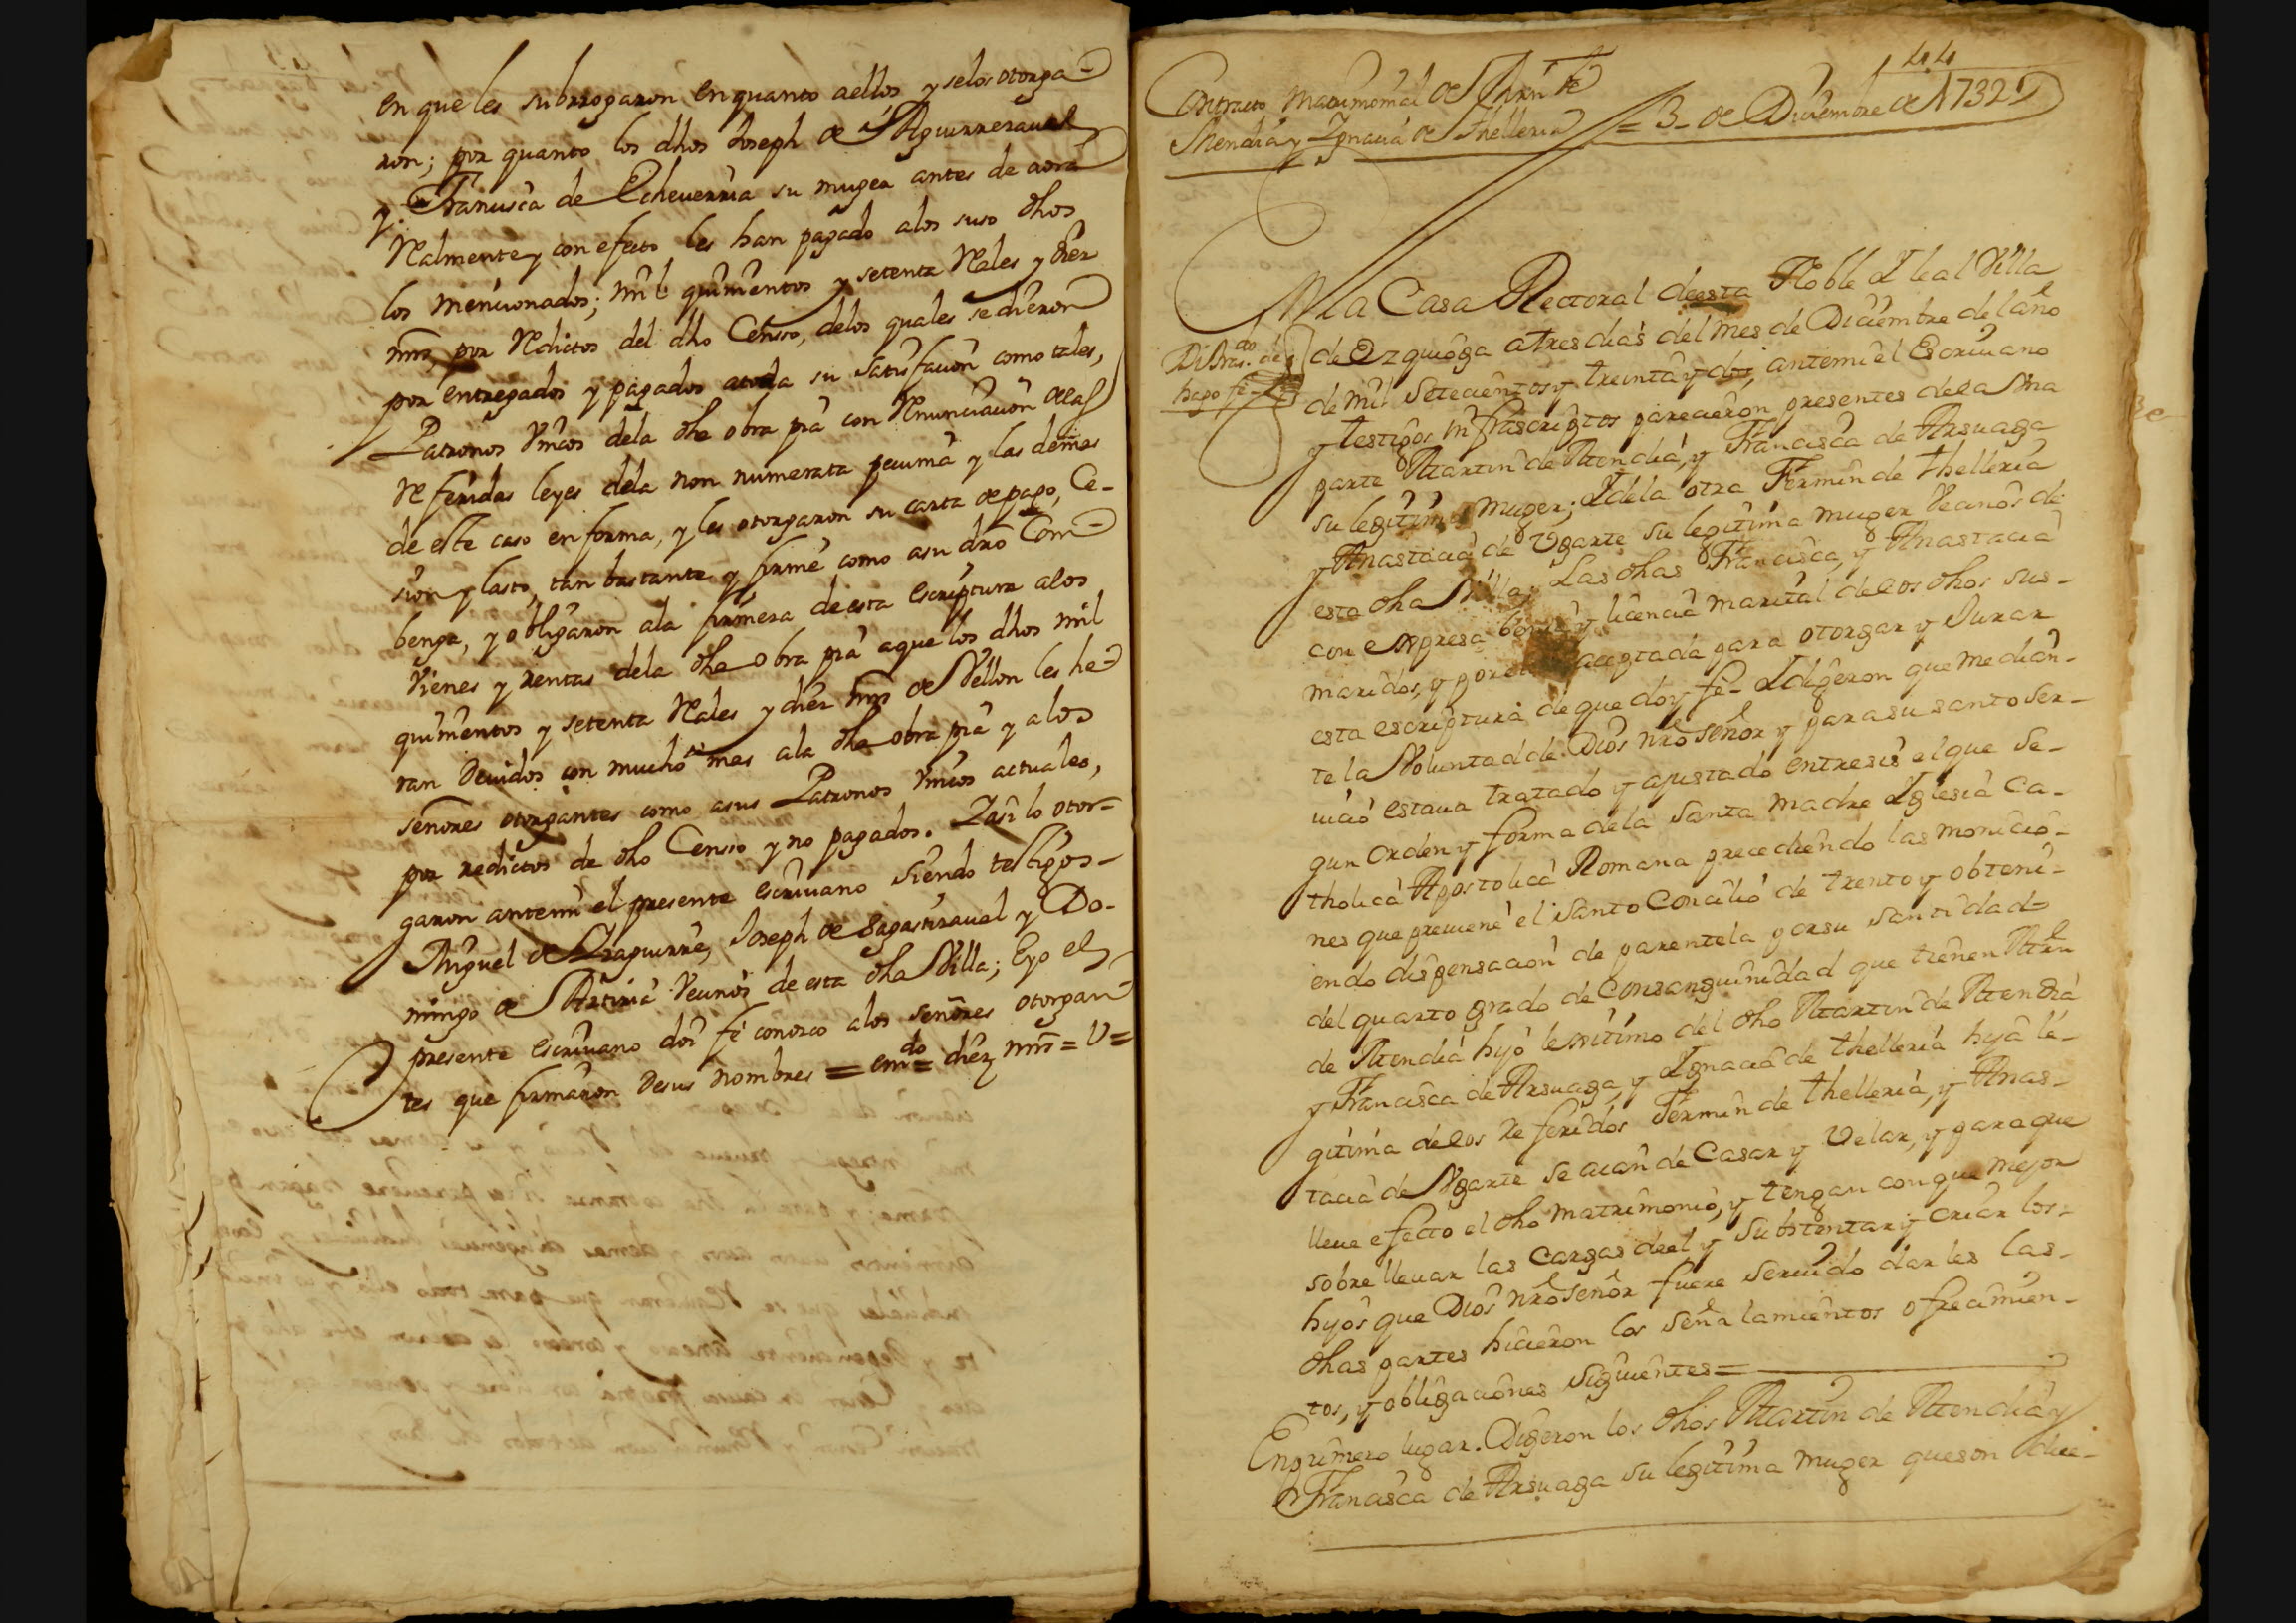 en que les subrrogaron en quanto aellos y selos otorga-
ron; por quanto los dhos Joseph de Aguirrezaval
y Francisca de Echeverria su muger antes de aora
Realmente y con efecto les han pagado alos suso dhos
los mencionados; mil quinientos y setenta Reales y diez
mrs, por Reditos del dho Censso, delos quales se dieron
por entregados y pagados atoda su satisfacion como tales,
Patronos Vnicos dela dha obra pia con Renunciacion delas
Referidas leyes dela non numerata pecunia y las demas
de este caso en forma, y les otorgaron su carta de pago, Ce-
sion y lasto, tan bastante y firme como asu dro Com-
benga, y obligaron ala firmeza de esta escriptura alos
Vienes y rentas dela dha obra pia aque los dhos mil
quinientos y setenta Reales y diez mrs de Vellon les he-
ran Devidos con mucho mas ala dha obra pia y alos
señores otorgantes como asus Patronos Vnicos actuales,
por redictos de dho Censso y no pagados. Yasi lo otor-
garon antemi el presente escrivano siendo testigos-
Miguel de Yraguirre, Joseph de Sagastizaval y Do-
mingo de Veçinos de esta dha Villa; Eyo el
presente escrivano doi fe conozco alos señores otorgan-
tes que firmaron de sus nombres = em.do = diez mrs = V =
44
Contracto Matrimonial de Mrn de
Mendia y Ignacia de Thelleria = 3 de Diciembre de 1732
En la Casa Rectoral de esta Noble Y leal Villa
de Ezquioga atres dias del mes de Diciembre del año
de mil Setecientos y treinta y dos, antemi el Escrivano
y testigos infrascriptos parecieron presentes dela Vna
parte Martin de Mendia, y Francisca de Arsuaga
su legitima muger; Y dela otra Fermin de thelleria
y Anastacia de Vgarte su legitima muger Vecinos de
esta dha Villa; Las dhas Francisca, y Anastacia
con expresa y licencia marital delos dhos sus-
maridos, y por aceptada para otorgar y Jurar
esta escriptura de que doy fe- Y digeron que median-
te la Voluntad de Dios nro señor y para su santo ser-
vicio estava tratado y ajustado entresis el que Se-
gun orden y forma dela Santa madre Yglesia Ca-
tholica Apostolica Romana precediendo las monicio-
nes que previene el Santo Concilio de trento y obteni-
endo dispensacion de parentela por su santidad
del quarto grado de Consanguinidad que tienen Mrn
de Mendia hijo lexitimo del dho Martin de Mendia
y Francisca de Arsuaga, y Ygnacia de thelleria hija le-
gitima delos Referidos Fermin de thelleria, y Anas-
tacia de Vgarte se aian de Casar y Velar, y para que
lleve efecto el dho matrimonio, y tengan con que mejor
sobrellevar las Cargas deel y Substentar y criar los-
hijos que Dios nro señor fuere servido darles las-
dhas partes hicieron los señalamientos ofrecimien-
tos, y obligaciones siguientes=
En primero lugar. Digeron los dhos Martin de Mendia y
Francisca de Arsuaga su legitima muger que son
hago fe